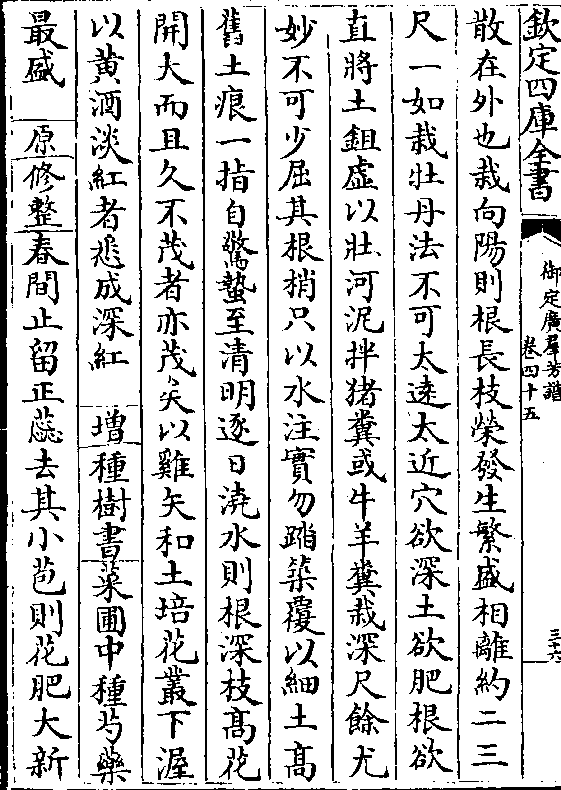 欽定四庫全書
御定廣羣芳譜
卷四十五
三十六
散在外也栽向陽則根長枝榮發生繁盛相離約二三
尺一如栽牡丹法不可太遠太近穴欲深土欲肥根欲
直將土鉏虛以壯河泥拌猪糞或牛羊糞栽深尺餘尤
妙不可少屈其根梢只以水注實勿踏築覆以細土高
舊土痕一指自驚蟄至清明逐日澆水則根深枝髙花
開大而且久不茂者亦茂矣以雞矢和土培花叢下渥
以黄酒淡紅者悉成深紅 增種樹書菜圃中種芍藥
最盛 原修整春間止留正蕊去其小苞則花肥大新